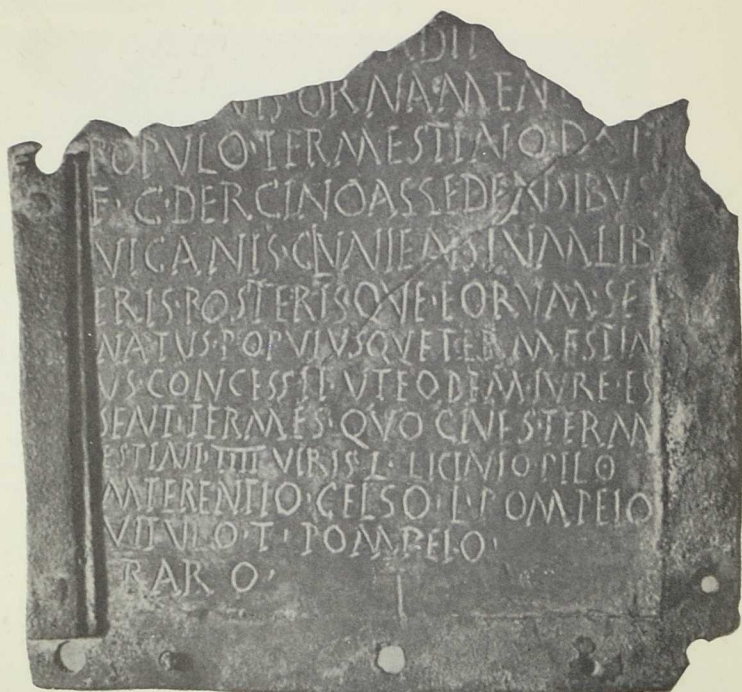 ORNAMEN
POPVLO·TERMESTINO
DERCINOASSEDENSIBVS
VICANIS·CLVNIENSIVMLIB
ERIS·POSTERISQVE·EORVM·SE
NATVS·POPVLVSQVETERMESTIN
VS·CONCESSIT·VTEODEM·IVRE·ES
SENT·TERMES·QVO·CIVES·TERM
ESTINI·IIII·VIRIS·L·LICINIO·PILO
M·TERENTIO·CELSO·L·POMPEIO
VITVLO·T·POMPEIO·
RARO·